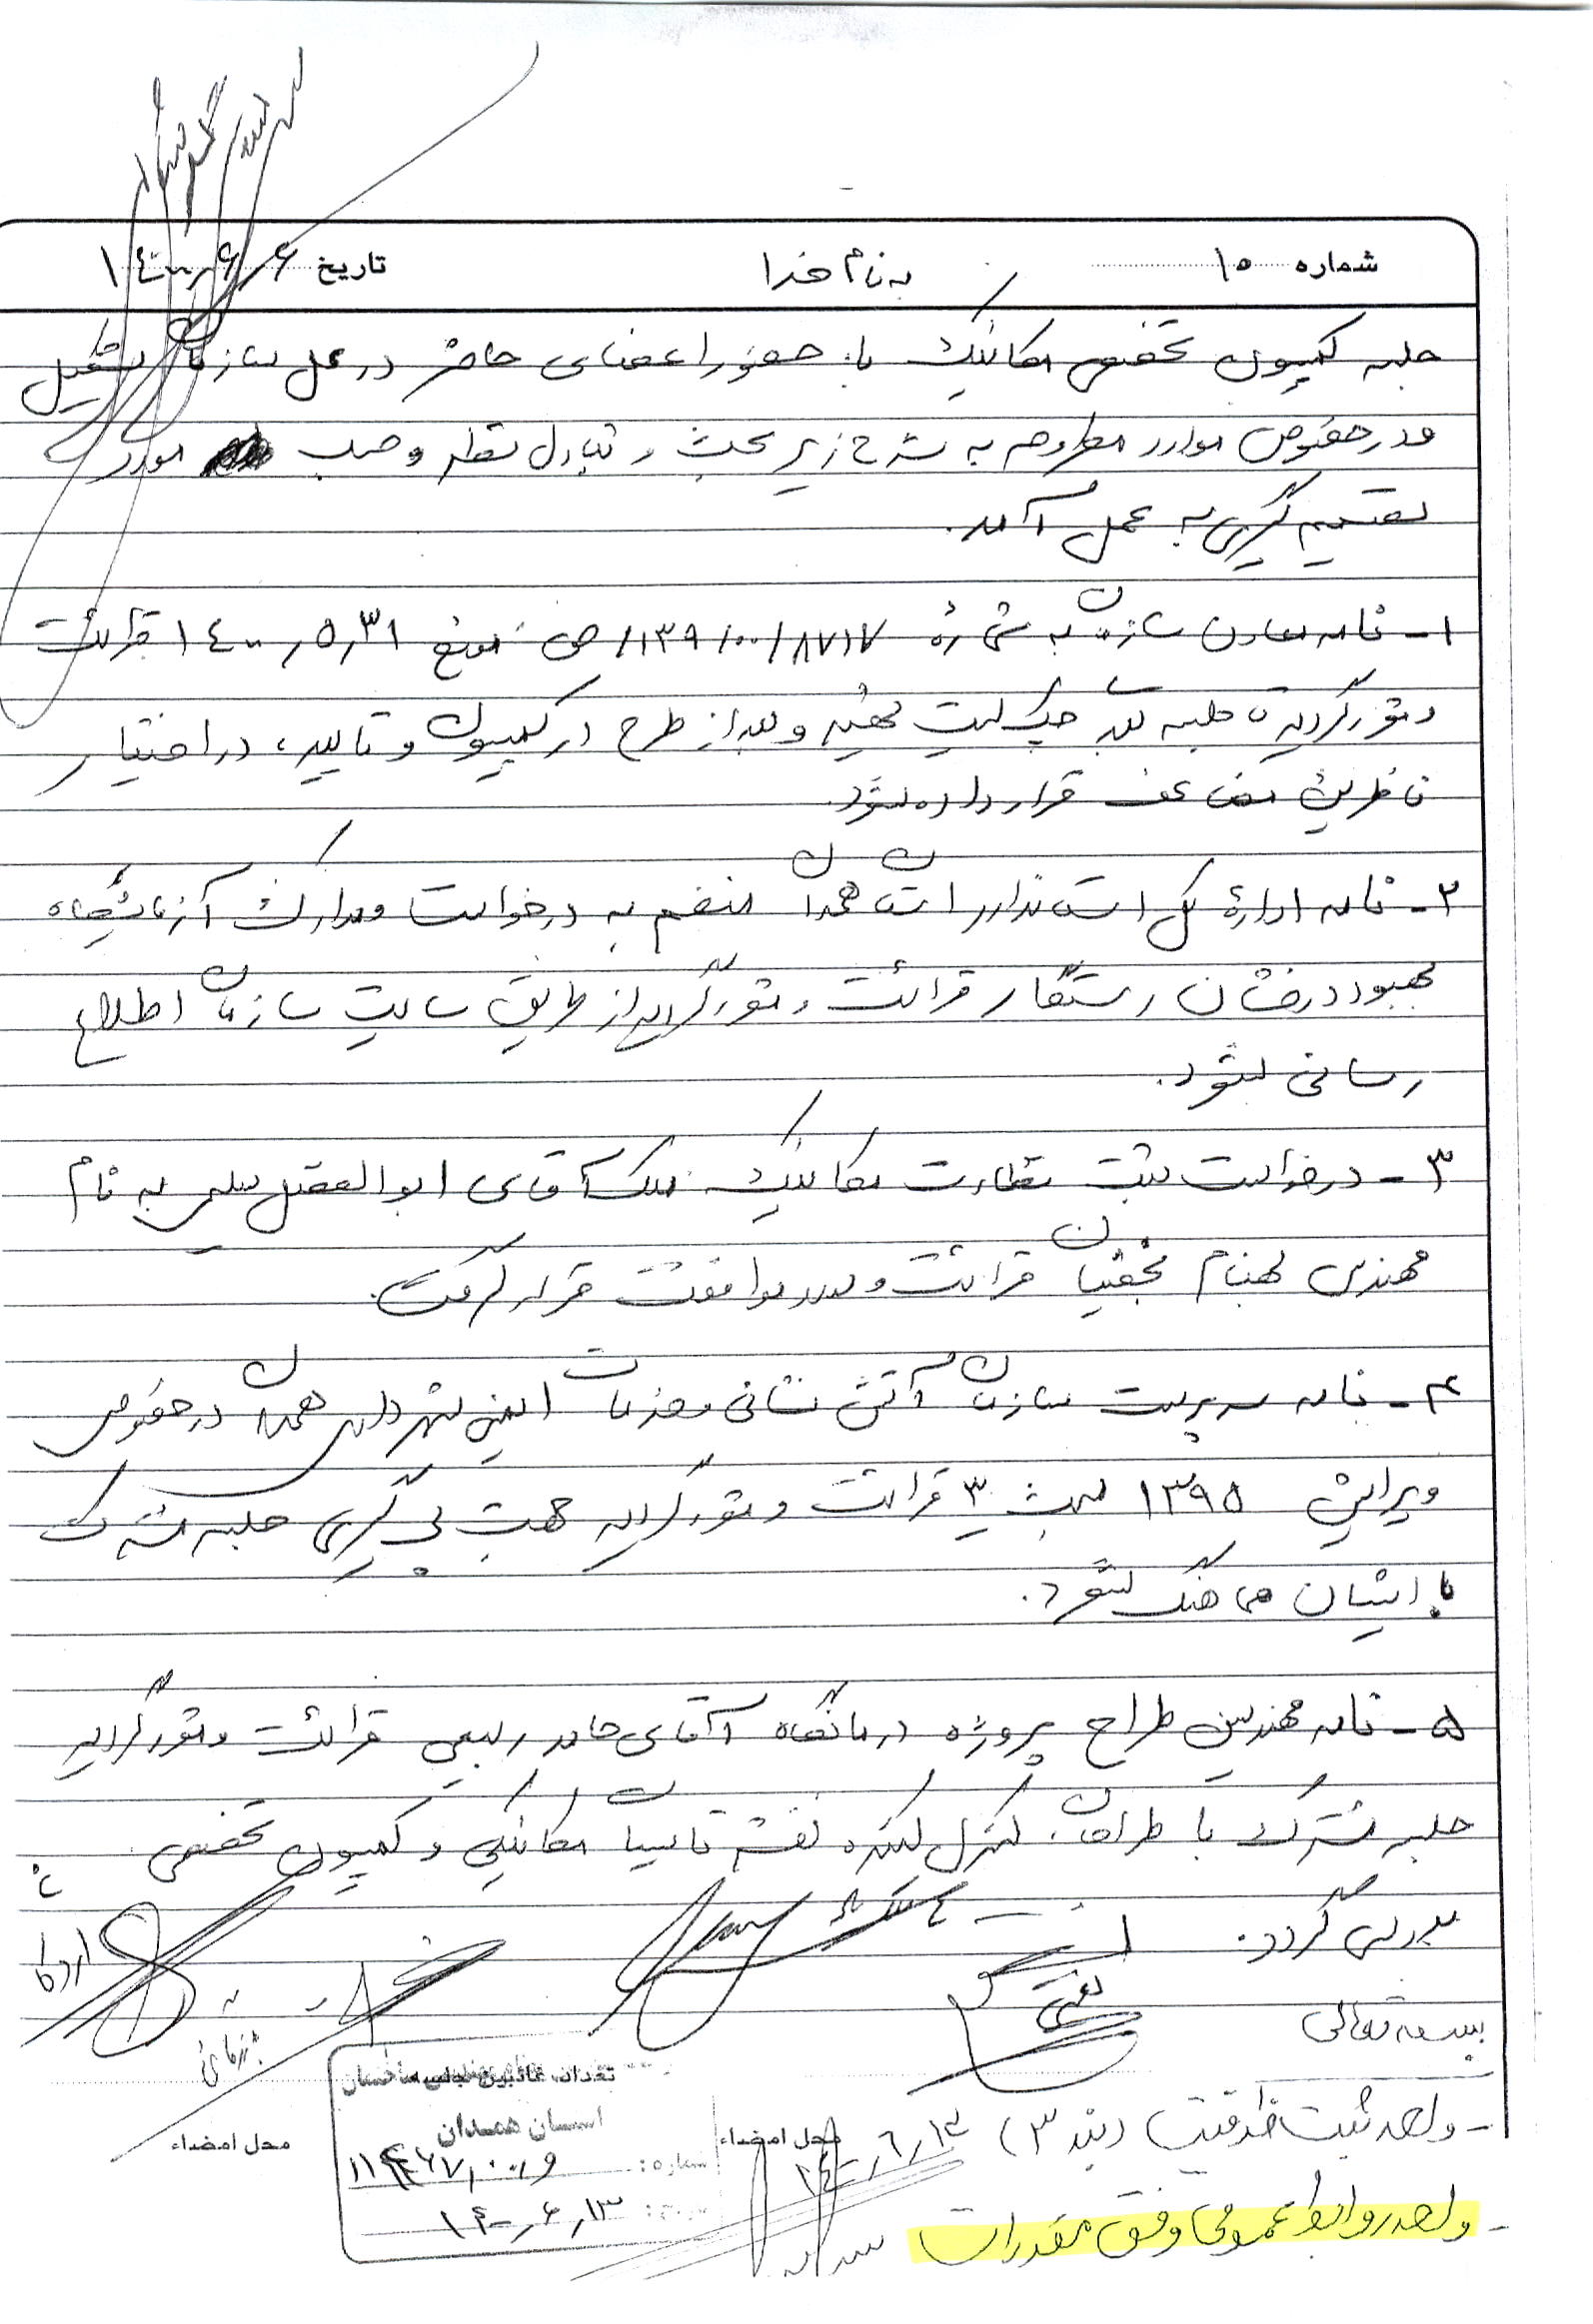 شماره ۱۵ به نام خدا تاریخ ۱۴۰۰/۶/۶
جلسه کمیسیون تخصصی مکانیک با حضور اعضای حاضر در محل سازمان تشکیل
و در خصوص موارد مطروحه به شرح زیر بحث و تبادل نظر و حسب مورد
تصمیم گیری به عمل آمد.
۱- نامه معاون سازمان به شماره ۱۳۹/۰۰/۸۷۱۷/ص مورخ ۱۴۰۰/۵/۳۱ قرائت
و مقرر گردید تا جلسه بعد چک لیست تهیه و بعد از طرح در کمیسیون و تایید، در اختیار
ناظرین مضاعف قرار داده شود.
۲- نامه اداره کل استاندارد استان همدان منضم به درخواست و مدارک آزمایشگاه
بهبود درخشان رستگار قرائت و مقرر گردید از طریق سایت سازمان اطلاع
رسانی شود.
۳- درخواست ثبت نظارت مکانیک ملک آقای ابوالفضل سلیمی به نام
مهندس بهنام نجفیان قرائت و مورد موافقت قرار گرفت.
۴- نامه سرپرست سازمان آتش نشانی و خدمات ایمنی شهرداری همدان در خصوص
ویرایش ۱۳۹۵ مبحث ۳ قرائت و مقرر گردید جهت پی گیری جلسه مشترک
با ایشان هماهنگ شود.
۵- نامه مهندسین طراح پروژه درمانگاه آقای حامد ربیعی قرائت و مقرر گردید
جلسه مشترک با طراحان، کنترل کننده نقشه تاسیسات مکانیکی و کمیسیون تخصصی
بررسی گردد.
بسمه تعالی
تعداد غائبین جلسه
استان همدان
- واحد ثبت ظرفیت (بند ۳) ۱۴۰۰/۶/۱۳
محل امضاء محل امضاء
شماره:
۱۴۰۰/۶/۱۳
- واحد روابط عمومی وفق مقررات